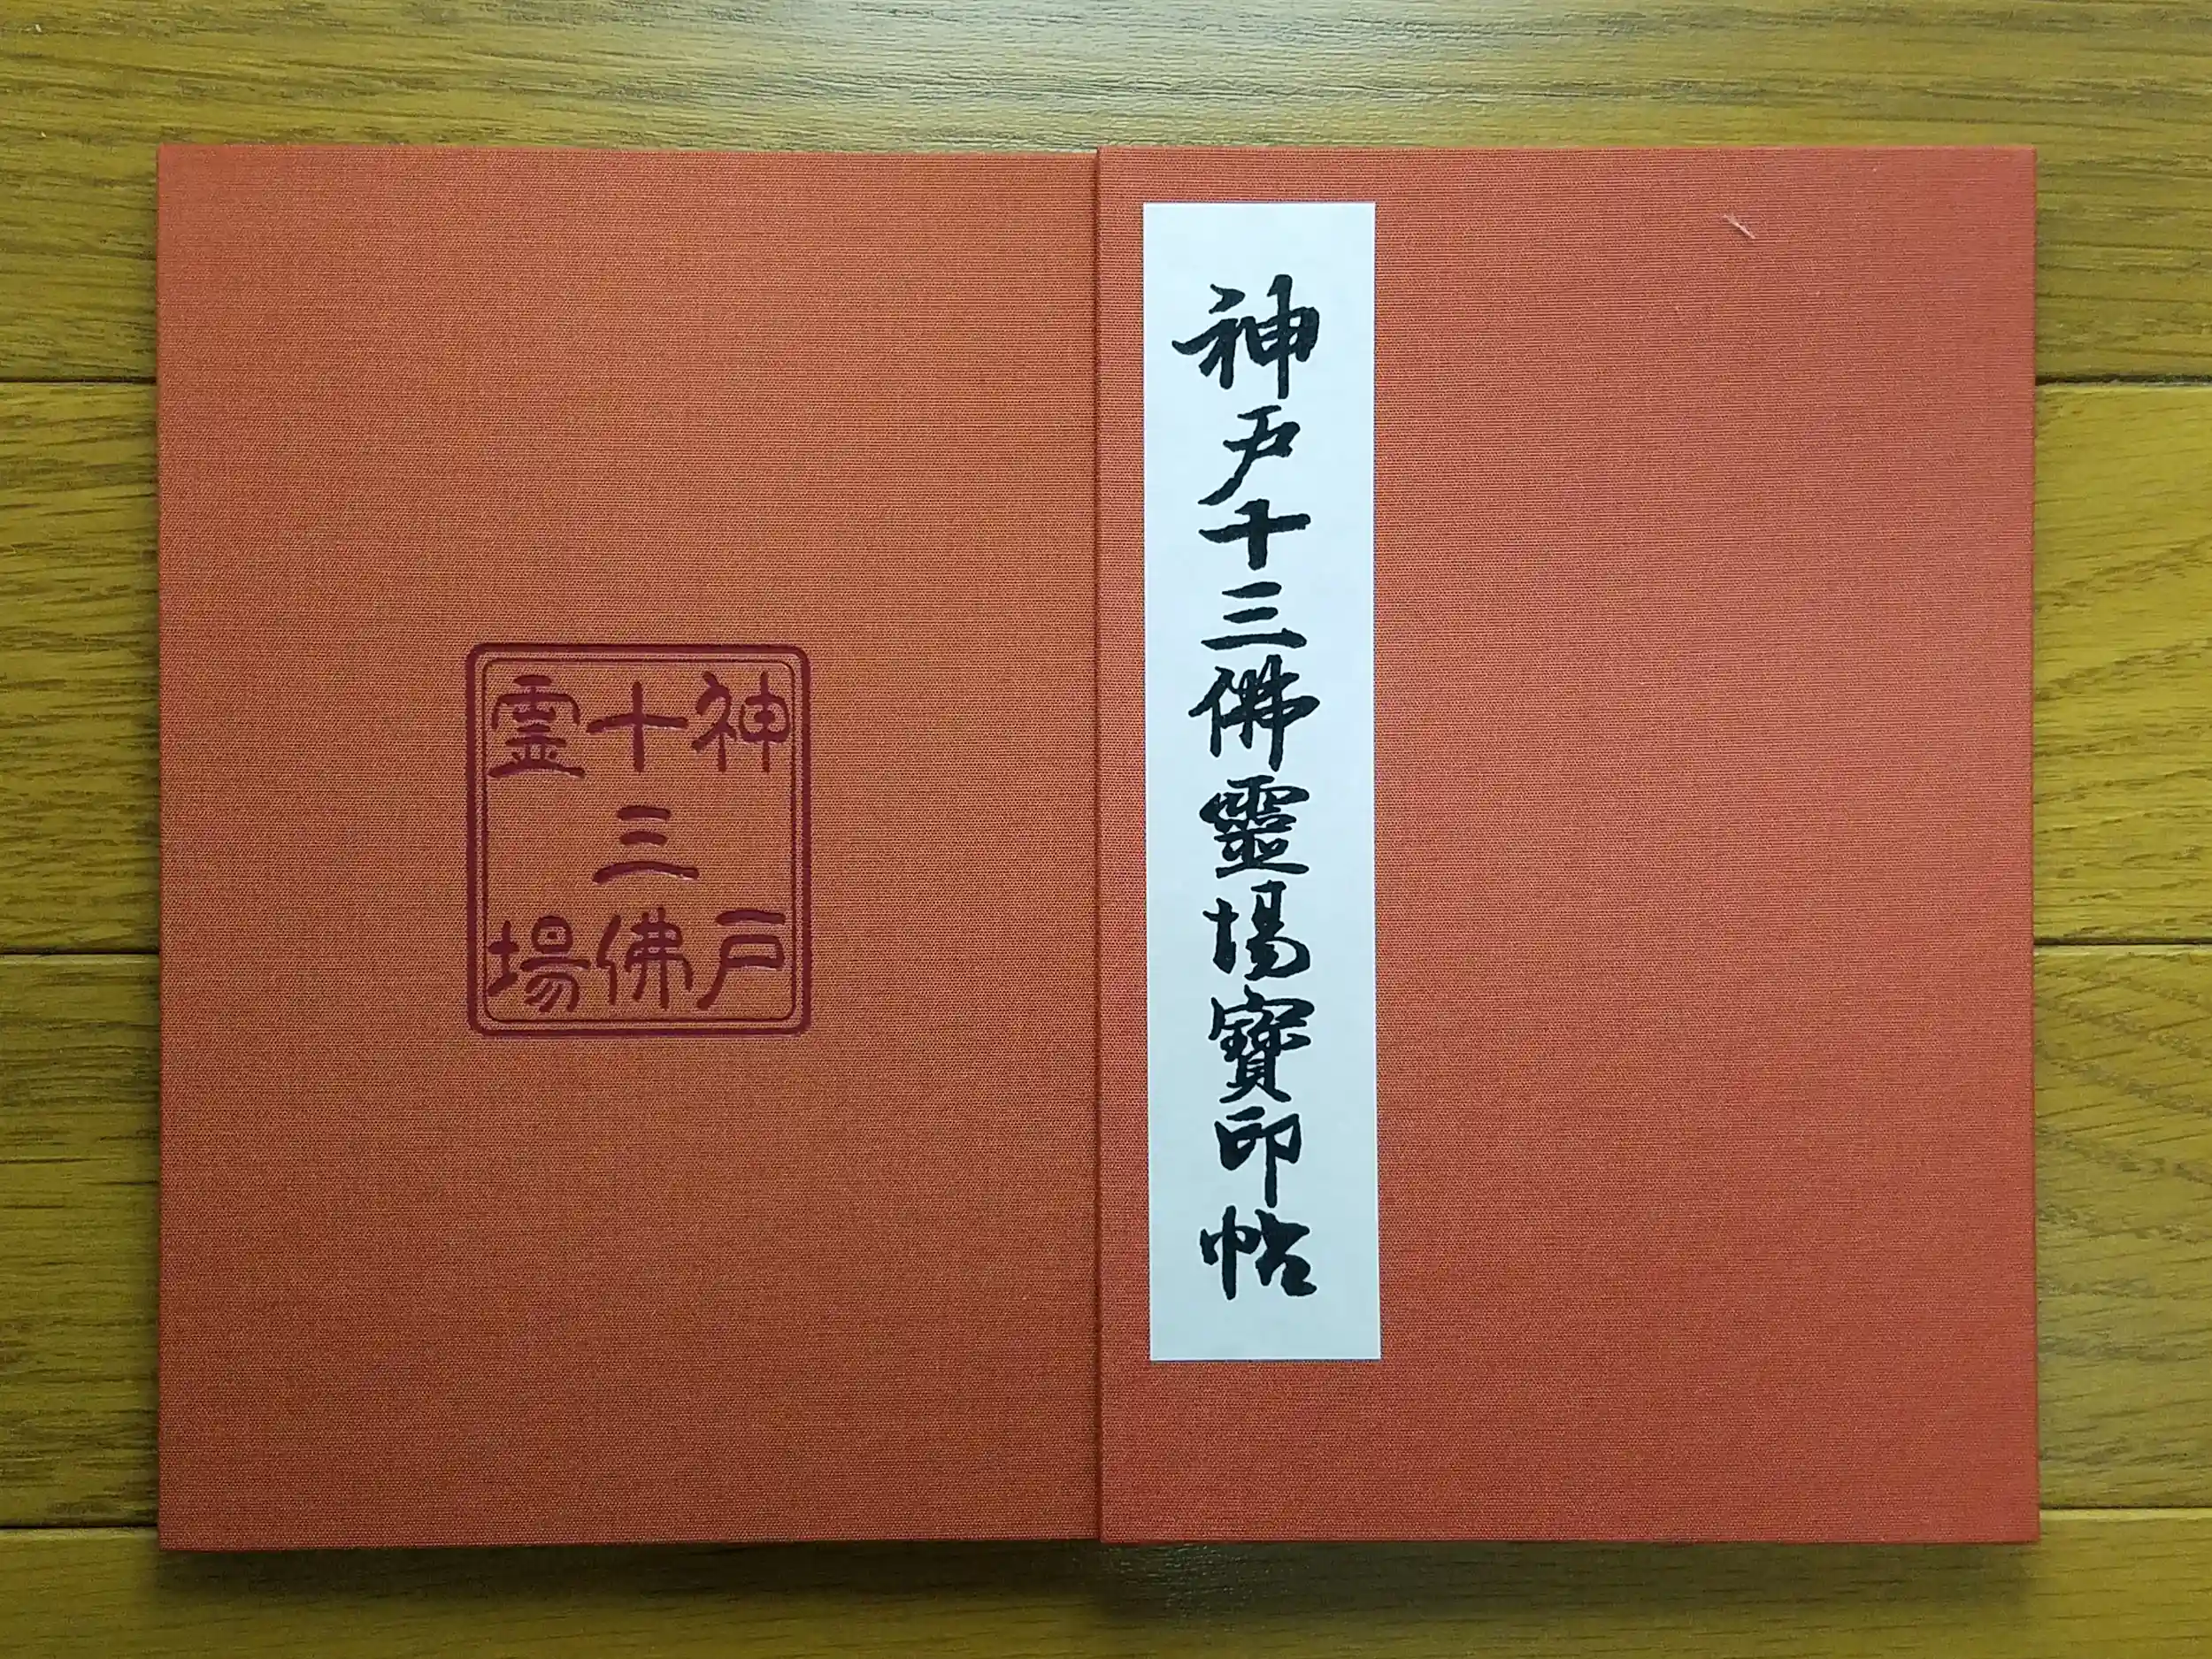 神戸十三佛靈場寳印帖
神戸
十三佛
霊場